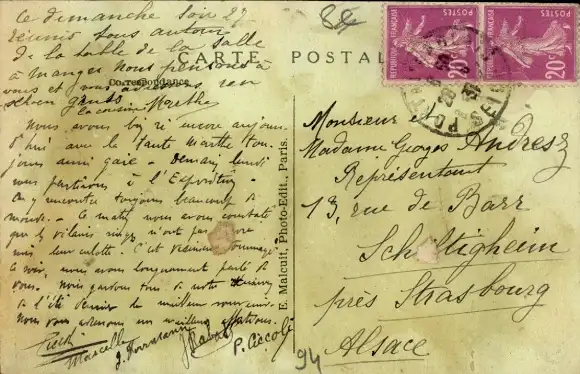 Ce dimanche soir 27
réunis tous autour
de la table de la salle
à manger nous pensons à
vous et vous
la cousine Marthe
CARTE POSTALE
Correspondance
Nous avons bien ri encore aujour
d'hui avec la tante Marthe tou-
jours aussi gaie - Demain, lundi
nous partirons à l'Exposition
On y rencontre toujours beaucoup de
monde - Ce matin, nous avons constaté
que les vilains singes n'ont pas
mis leur culotte. C'est vraiment dommage!
Ce soir, nous avons longuement parlé de
vous. Nous gardons tous de notre
de l'été dernier le meilleur souvenir.
Nous vous adressons nos meilleures affections.
Marcelle
P. Ciccoli
E. Malcuit, Photo-Edit., Paris.
REPUBLIQUE FRANÇAISE
POSTES
20c
REPUBLIQUE FRANÇAISE
POSTES
20c
Monsieur et
Madame Georges Andresz
Représentant
13, rue de Barr
Schiltigheim
près Strasbourg
Alsace
94